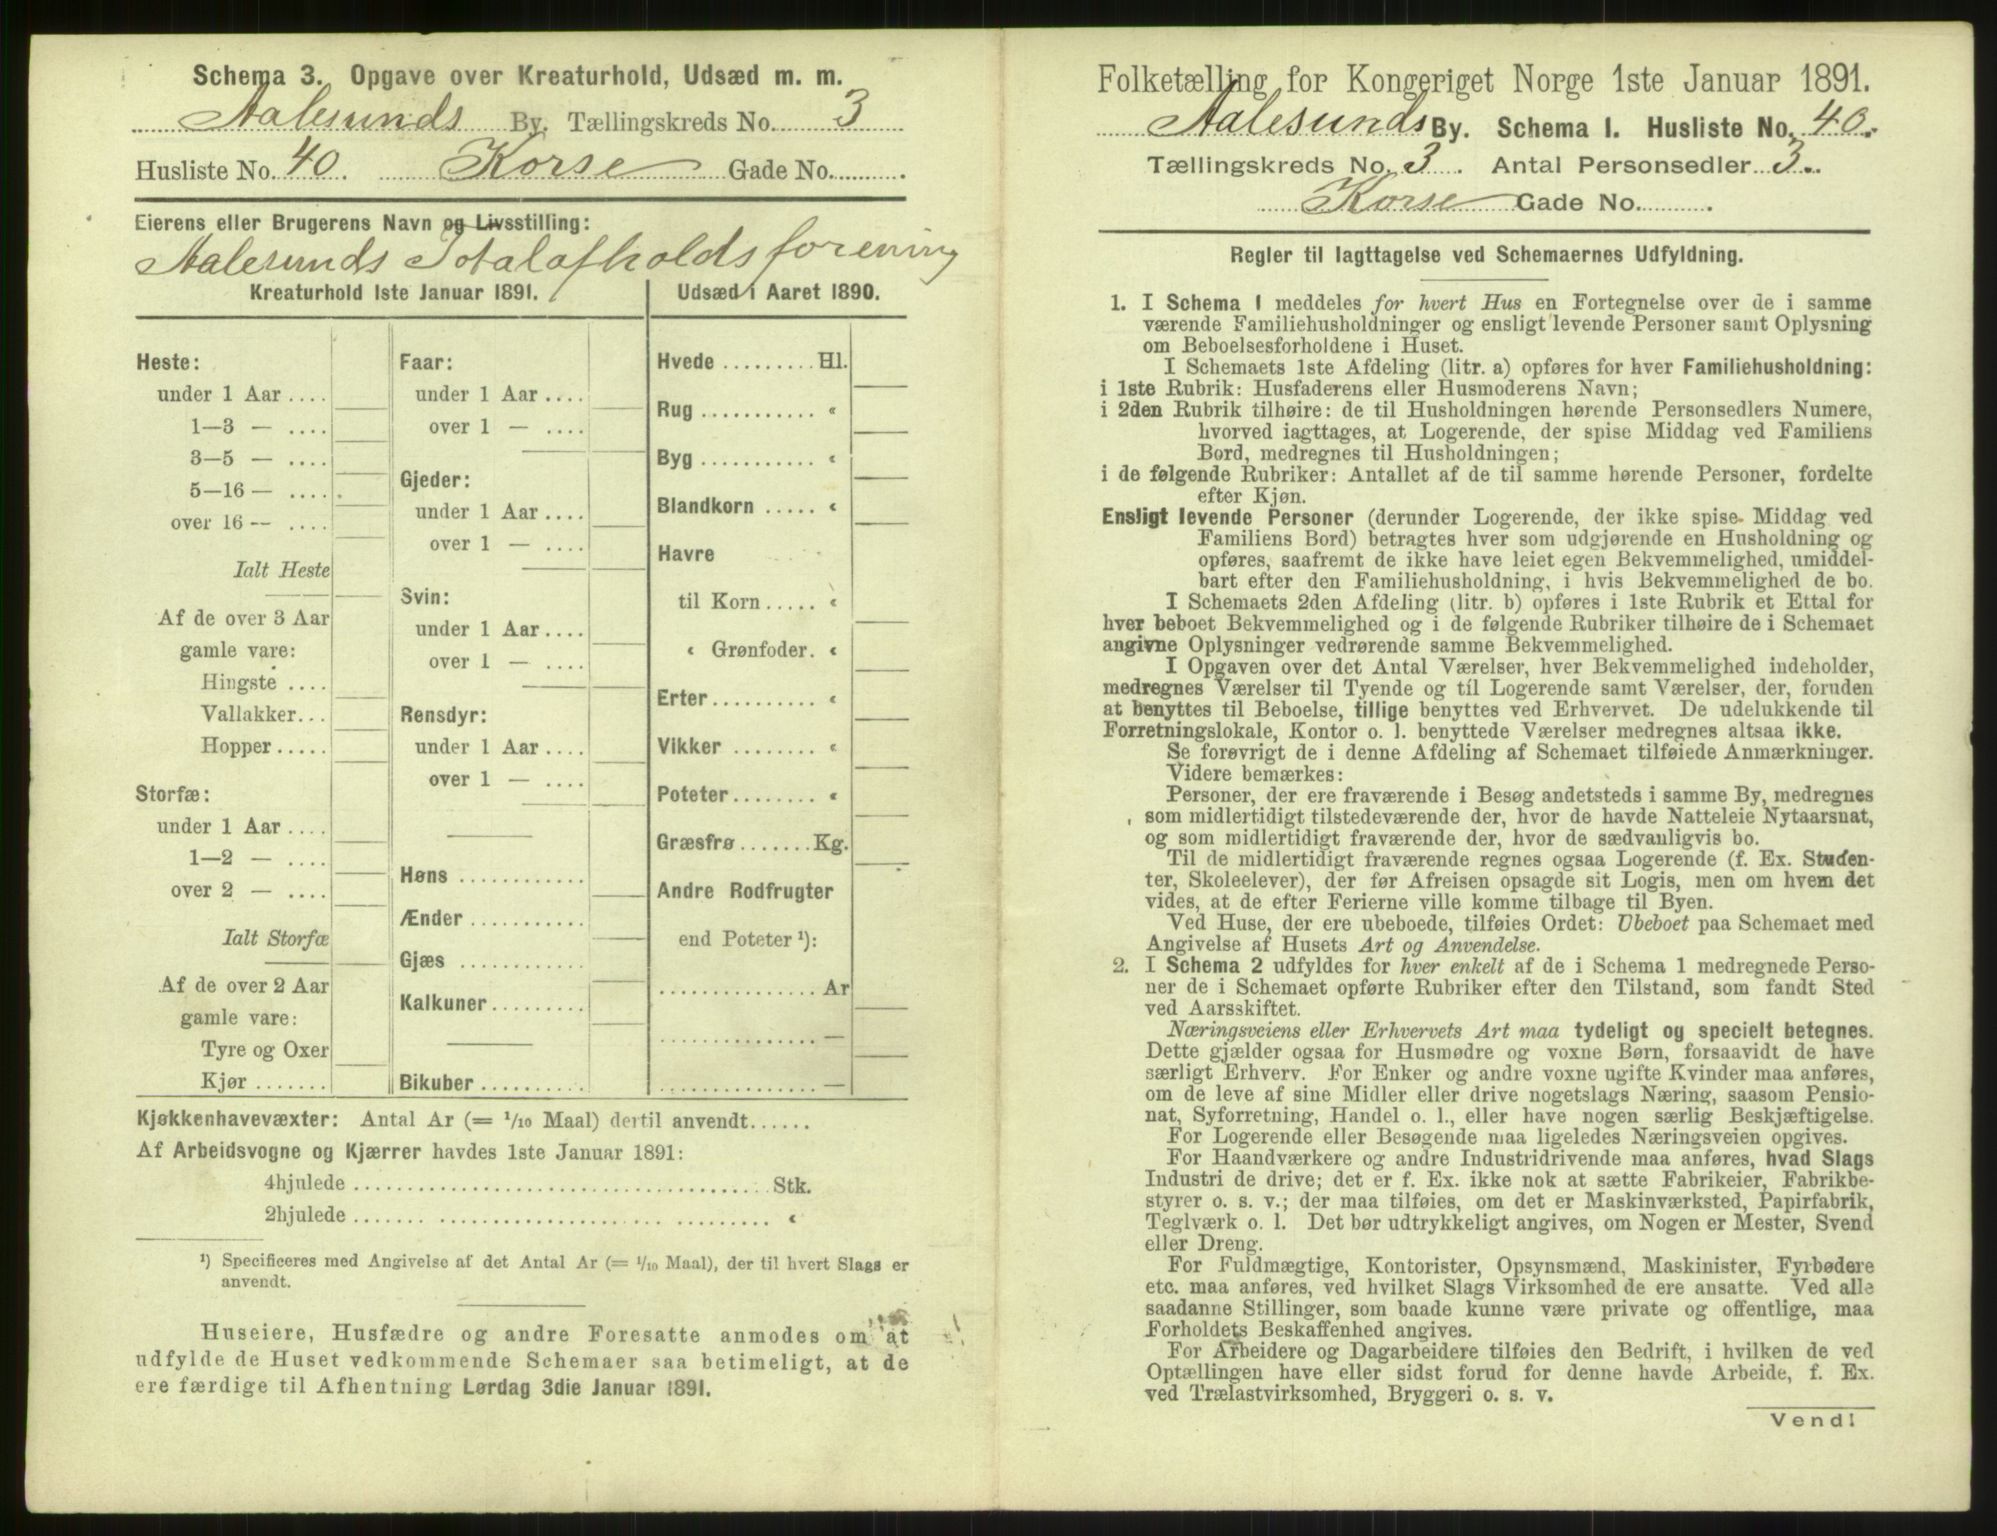 Schema 3. Opgave over Kreaturhold, Udsæd m. m.
Aalesunds By. Tællingskreds No. 3
Husliste No. 40. Korse Gade No.
Eierens eller Brugerens Navn og Livsstilling:
Aalesunds Totalafholdsforening
Kreaturhold 1ste Januar 1891.
Heste:
under 1 Aar ....
1—3 — ....
3—5 — ....
5—16 — ....
over 16 — ....
Ialt Heste
Af de over 3 Aar
gamle vare:
Hingste ....
Vallakker...
Hopper .....
Storfæ:
under 1 Aar ....
1—2 — ....
over 2 — ....
Ialt Storfæ
Af de over 2 Aar
gamle vare:
Tyre og Oxer
Kjør .......
Faar:
under 1 Aar ....
over 1 — ....
Gjeder:
under 1 Aar ....
over 1 — ....
Svin:
under 1 Aar ....
over 1 — ....
Rensdyr:
under 1 Aar ....
over 1 — ....
Høns ............
Ænder ...........
Gjæs ............
Kalkuner .........
Bikuber ..........
Udsæd i Aaret 1890.
Hvede ......... Hl.
Rug ........... «
Byg ........... «
Blandkorn ..... «
Havre
til Korn ..... «
« Grønfoder. «
Erter .......... «
Vikker ......... «
Poteter ........ «
Græsfrø ....... Kg.
Andre Rodfrugter
end Poteter ¹):
............... Ar
............... —
............... —
Kjøkkenhavevæxter: Antal Ar (= 1/10 Maal) dertil anvendt......
Af Arbeidsvogne og Kjærrer havdes 1ste Januar 1891:
4hjulede ........................................ Stk.
2hjulede ........................................ «
¹) Specificeres med Angivelse af det Antal Ar (= 1/10 Maal), der til hvert Slags er
anvendt.
Huseiere, Husfædre og andre Foresatte anmodes om at
udfylde de Huset vedkommende Schemaer saa betimeligt, at de
ere færdige til Afhentning Lørdag 3die Januar 1891.
Folketælling for Kongeriget Norge 1ste Januar 1891.
Aalesunds By. Schema I. Husliste No. 40.
Tællingskreds No. 3. Antal Personsedler 3.
Korse Gade No.
Regler til Iagttagelse ved Schemaernes Udfyldning.
1. I Schema 1 meddeles for hvert Hus en Fortegnelse over de i samme
værende Familiehusholdninger og ensligt levende Personer samt Oplysning
om Beboelsesforholdene i Huset.
I Schemaets 1ste Afdeling (litr. a) opføres for hver Familiehusholdning:
i 1ste Rubrik: Husfaderens eller Husmoderens Navn;
i 2den Rubrik tilhøire: de til Husholdningen hørende Personsedlers Numere,
hvorved iagttages, at Logerende, der spise Middag ved Familiens
Bord, medregnes til Husholdningen;
i de følgende Rubriker: Antallet af de til samme hørende Personer, fordelte
efter Kjøn.
Ensligt levende Personer (derunder Logerende, der ikke spise Middag ved
Familiens Bord) betragtes hver som udgjørende en Husholdning og
opføres, saafremt de ikke have leiet egen Bekvemmelighed, umiddel-
bart efter den Familiehusholdning, i hvis Bekvemmelighed de bo.
I Schemaets 2den Afdeling (litr. b) opføres i 1ste Rubrik et Ettal for
hver beboet Bekvemmelighed og i de følgende Rubriker tilhøire de i Schemaet
angivne Oplysninger vedrørende samme Bekvemmelighed.
I Opgaven over det Antal Værelser, hver Bekvemmelighed indeholder,
medregnes Værelser til Tyende og til Logerende samt Værelser, der, foruden
at benyttes til Beboelse, tillige benyttes ved Erhvervet. De udelukkende til
Forretningslokale, Kontor o. l. benyttede Værelser medregnes altsaa ikke.
Se forøvrigt de i denne Afdeling af Schemaet tilføiede Anmærkninger.
Videre bemærkes:
Personer, der ere fraværende i Besøg andetsteds i samme By, medregnes
som midlertidigt tilstedeværende der, hvor de havde Natteleie Nytaarsnat,
og som midlertidigt fraværende der, hvor de sædvanligvis bo.
Til de midlertidigt fraværende regnes ogsaa Logerende (f. Ex. Studen-
ter, Skoleelever), der før Afreisen opsagde sit Logis, men om hvem det
vides, at de efter Ferierne ville komme tilbage til Byen.
Ved Huse, der ere ubeboede, tilføies Ordet: Ubeboet paa Schemaet med
Angivelse af Husets Art og Anvendelse.
2. I Schema 2 udfyldes for hver enkelt af de i Schema 1 medregnede Perso-
ner de i Schemaet opførte Rubriker efter den Tilstand, som fandt Sted
ved Aarsskiftet.
Næringsveiens eller Erhvervets Art maa tydeligt og specielt betegnes.
Dette gjælder ogsaa for Husmødre og voxne Børn, forsaavidt de have
særligt Erhverv. For Enker og andre voxne ugifte Kvinder maa anføres,
om de leve af sine Midler eller drive nogetslags Næring, saasom Pensio-
nat, Syforretning, Handel o. l., eller have nogen særlig Beskjæftigelse.
For Logerende eller Besøgende maa ligeledes Næringsveien opgives.
For Haandværkere og andre Industridrivende maa anføres, hvad Slags
Industri de drive; det er f. Ex. ikke nok at sætte Fabrikeier, Fabrikbe-
styrer o. s. v.; der maa tilføies, om det er Maskinværksted, Papirfabrik,
Teglværk o. l. Det bør udtrykkeligt angives, om Nogen er Mester, Svend
eller Dreng.
For Fuldmægtige, Kontorister, Opsynsmænd, Maskinister, Fyrbødere
etc. maa anføres, ved hvilket Slags Virksomhed de ere ansatte. Ved alle
saadanne Stillinger, som baade kunne være private og offentlige, maa
Forholdets Beskaffenhed angives.
For Arbeidere og Dagarbeidere tilføies den Bedrift, i hvilken de ved
Optællingen have eller sidst forud for denne havde Arbeide, f. Ex.
ved Trælastvirksomhed, Bryggeri o. s. v.
Vend!